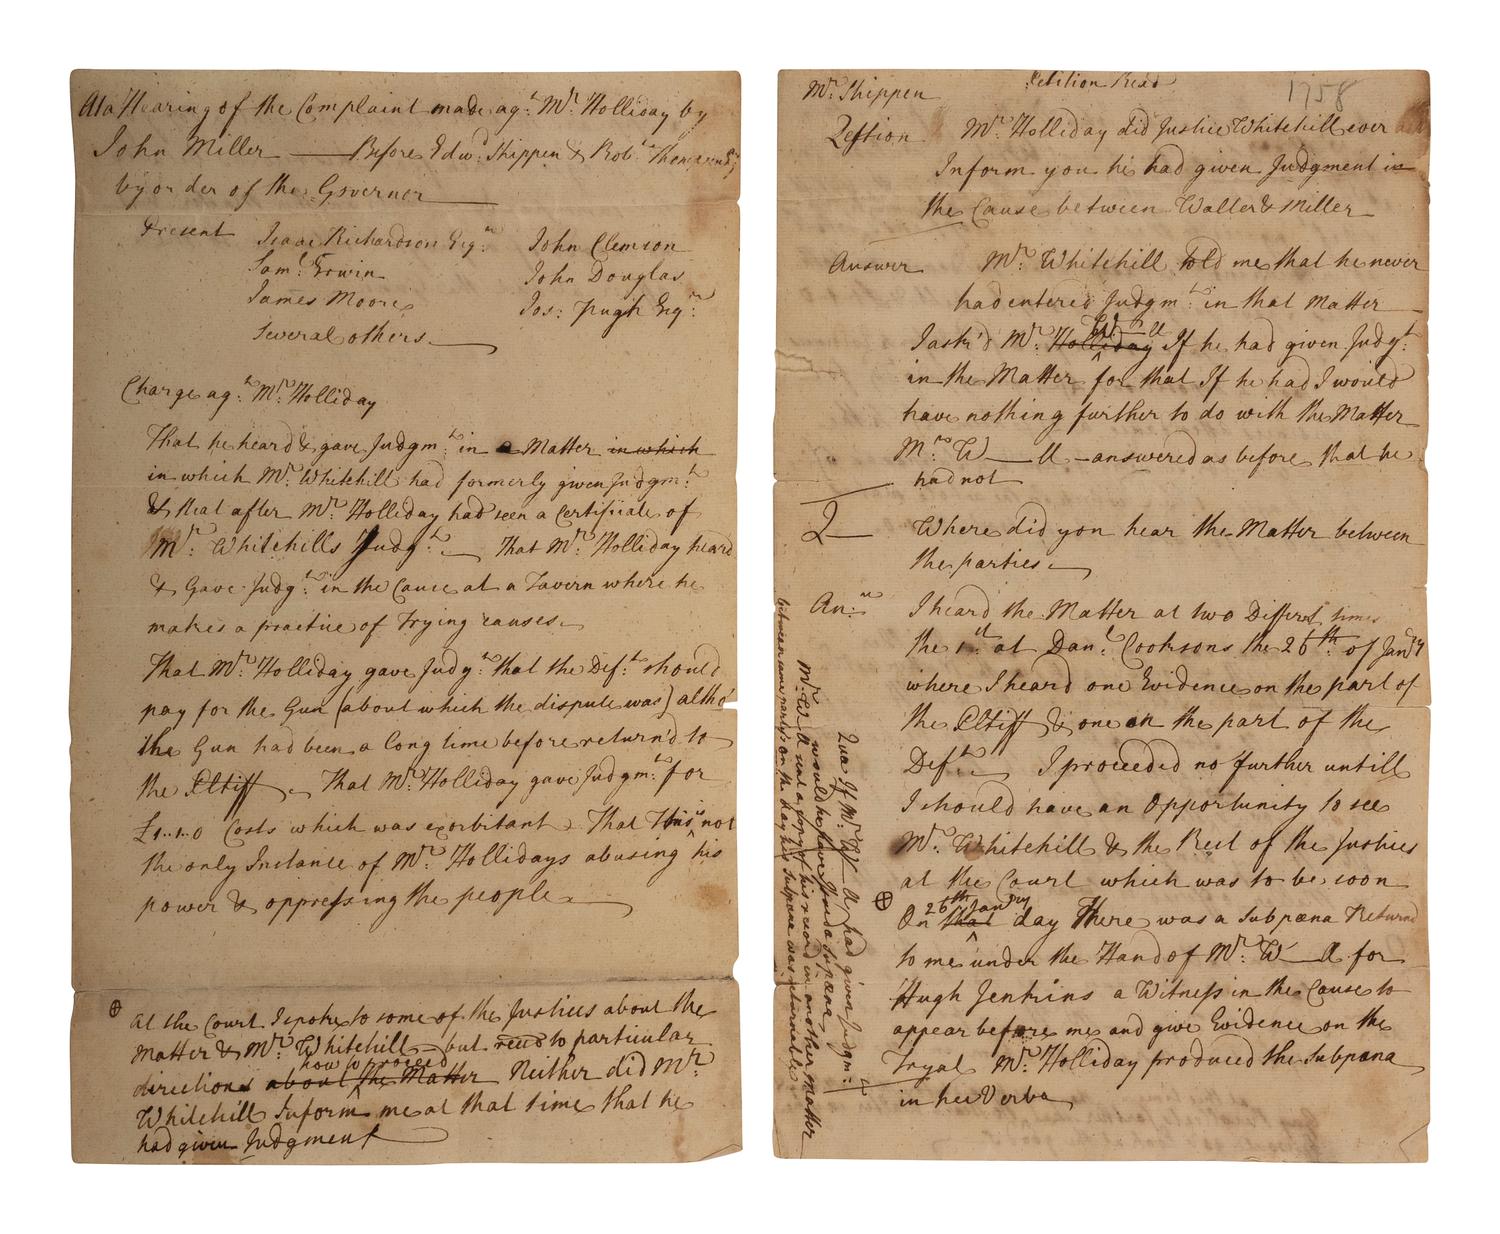 At a Hearing of the Complaint made agt. Mr. Holliday by
John Miller —— Before Edwd. Shippen & Robt. Thomson Esqs
by order of the Governor
Present
Isaac Richardson Esqr.
Saml. Erwin
James Moore
Several others
John Clemson
John Douglas
Jos: Pugh Esqr.
Charge agt. Mr. Holliday
That he heard & gave Judgmt. in a Matter in which
in which Mr. Whitehill had formerly given Judgmt.
& that after Mr. Holliday had seen a Certificate of
Mr. Whitehills Judgt. That Mr. Holliday heard
& Gave Judgt. in the Cause at a Tavern where he
makes a practice of Trying causes
That Mr. Holliday gave Judgt. that the Deft. should
pay for the Gun (about which the dispute was) altho'
the Gun had been a long time before return'd to
the Pltiff. That Mr. Holliday gave Judgmt. for
£1..1..0 Costs which was exorbitant That This is not
the only Instance of Mr. Hollidays abusing his
power & oppressing the people
⊕ at the Court I spoke to some of the Justices about the
Matter & Mr. Whitehill but no particular
how to proceed
directions about the Matter Neither did Mr.
Whitehill Inform me at that time that he
had given Judgment
Mr. Shippen
Petition Read
1758
Qestion Mr. Holliday did Justice Whitehill ever
Inform you he had given Judgment in
the Cause between Waller & Miller
Answer Mr. Whitehill told me that he never
had entered Judgmt. in that Matter
W—ll
I ask'd Mr. Holliday If he had given Judgt.
in the Matter for that If he had I would
have nothing further to do with the Matter
Mr. W—ll answered as before that he
had not
Q Where did you hear the Matter between
the parties
Anr. I heard the Matter at two Different times
the 1st. at Danl. Cooksons the 26th. of Janry
where I heard one Evidence on the part of
the Pltiff & one on the part of the
Deft. I proceeded no further untill
I should have an Opportunity to see
Mr. Whitehill & the Rest of the Justices
at the Court which was to be soon
⊕
26th Janry
On that day There was a Subpœna Returnd
to me under the Hand of Mr. W—ll for
Hugh Jenkins a Witness in the Cause to
appear before me and give Evidence on the
Tryal Mr. Holliday produced the Subpœna
in hec Verba
Qua If Mr. W—ll had given Judgmt.
would he have Issued a Subpœna
Mr. W—ll sent a Copy of his record in another Matter
between same partys on the day his Subpœna was returnable